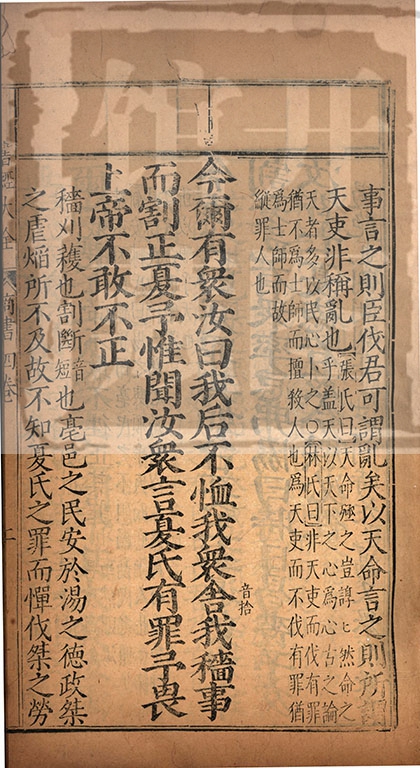 事言之則臣伐君可謂亂矣以天命言之則所謂
天吏非稱亂也
張氏曰天命殛之豈諄〻然命之
乎蓋天以天下之心爲心古之論
天者多以民心卜之○林氏曰非天吏而伐有罪
猶不爲士師而擅殺人也爲天吏而不伐有罪猶
爲士師而故
縱罪人也
今爾有衆汝曰我后不恤我衆舍我穡事
音拾
而割正夏予惟聞汝衆言夏氏有罪予畏
上帝不敢不正
穡刈穫也割斷音短也亳邑之民安於湯之德政桀
之虐焰所不及故不知夏氏之罪而憚伐桀之勞
大全 商書 四卷